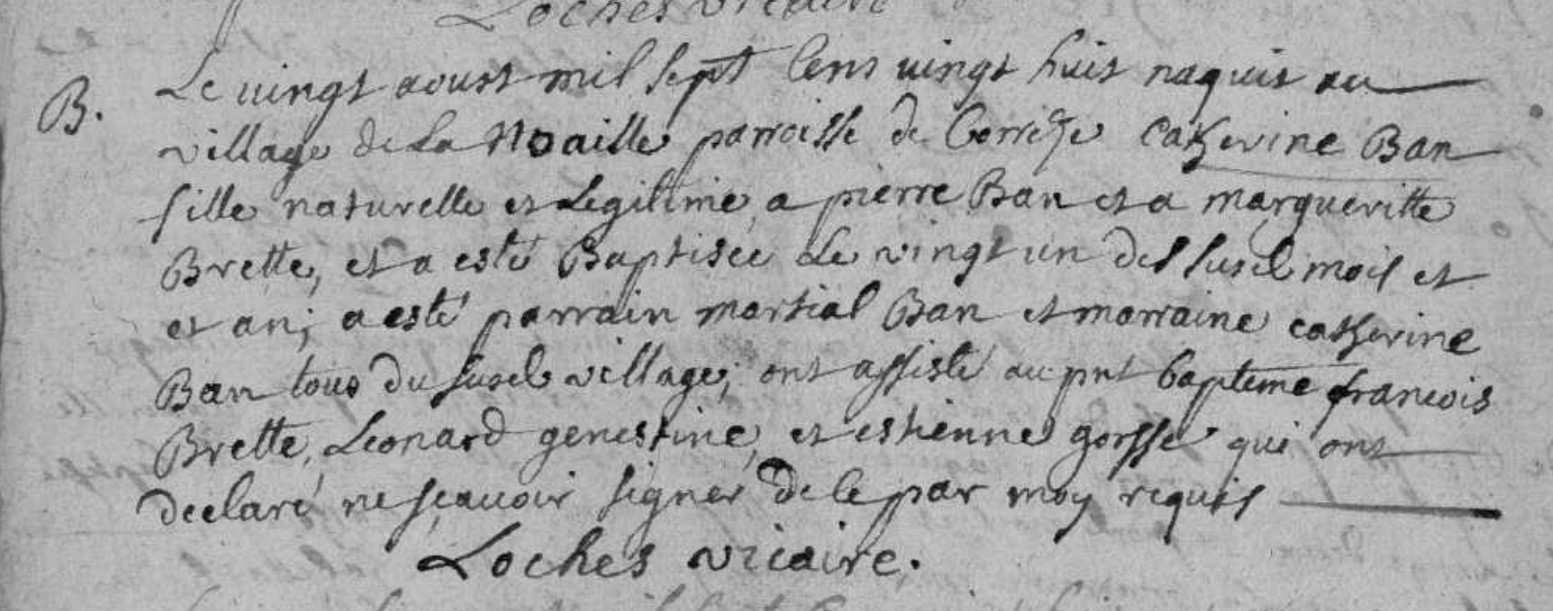 Loches vicaire
B. Le vingt aoust mil sept cens vingt huit naquit au
village de La Noaille parroisse de Correze Catherine Ban
fille naturelle et Legitime a pierre Ban et a margueritte
Brette, et a esté Baptisée Le vingt un del susd mois et
et an; a esté parrain martial Ban et marraine catherine
Ban tous du susd village; ont assisté au pnt bapteme francois
Brette, Leonard genestine, et estienne gorsse qui ont
declaré ne scavoir signer de ce par moy requis
Loches vicaire.